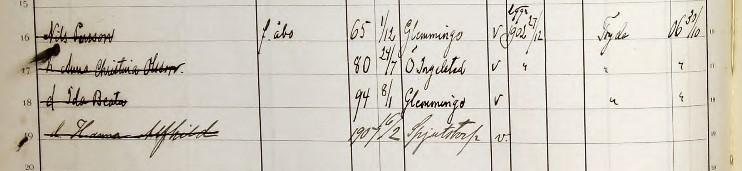 15
16 Nils Persson f. åbo 65 1/12 Glemmingo v 1902 27/12 Fryde 06 30/10 16
17 h Anna Christina Olsson. 80 24/7 Ö Ingelsta v " " " 17
18 d Ida Beata 94 8/1 Glemmingo v " " 18
19 d Hanna Alfhild 1905 /2 Spjutstorp v. 19
20